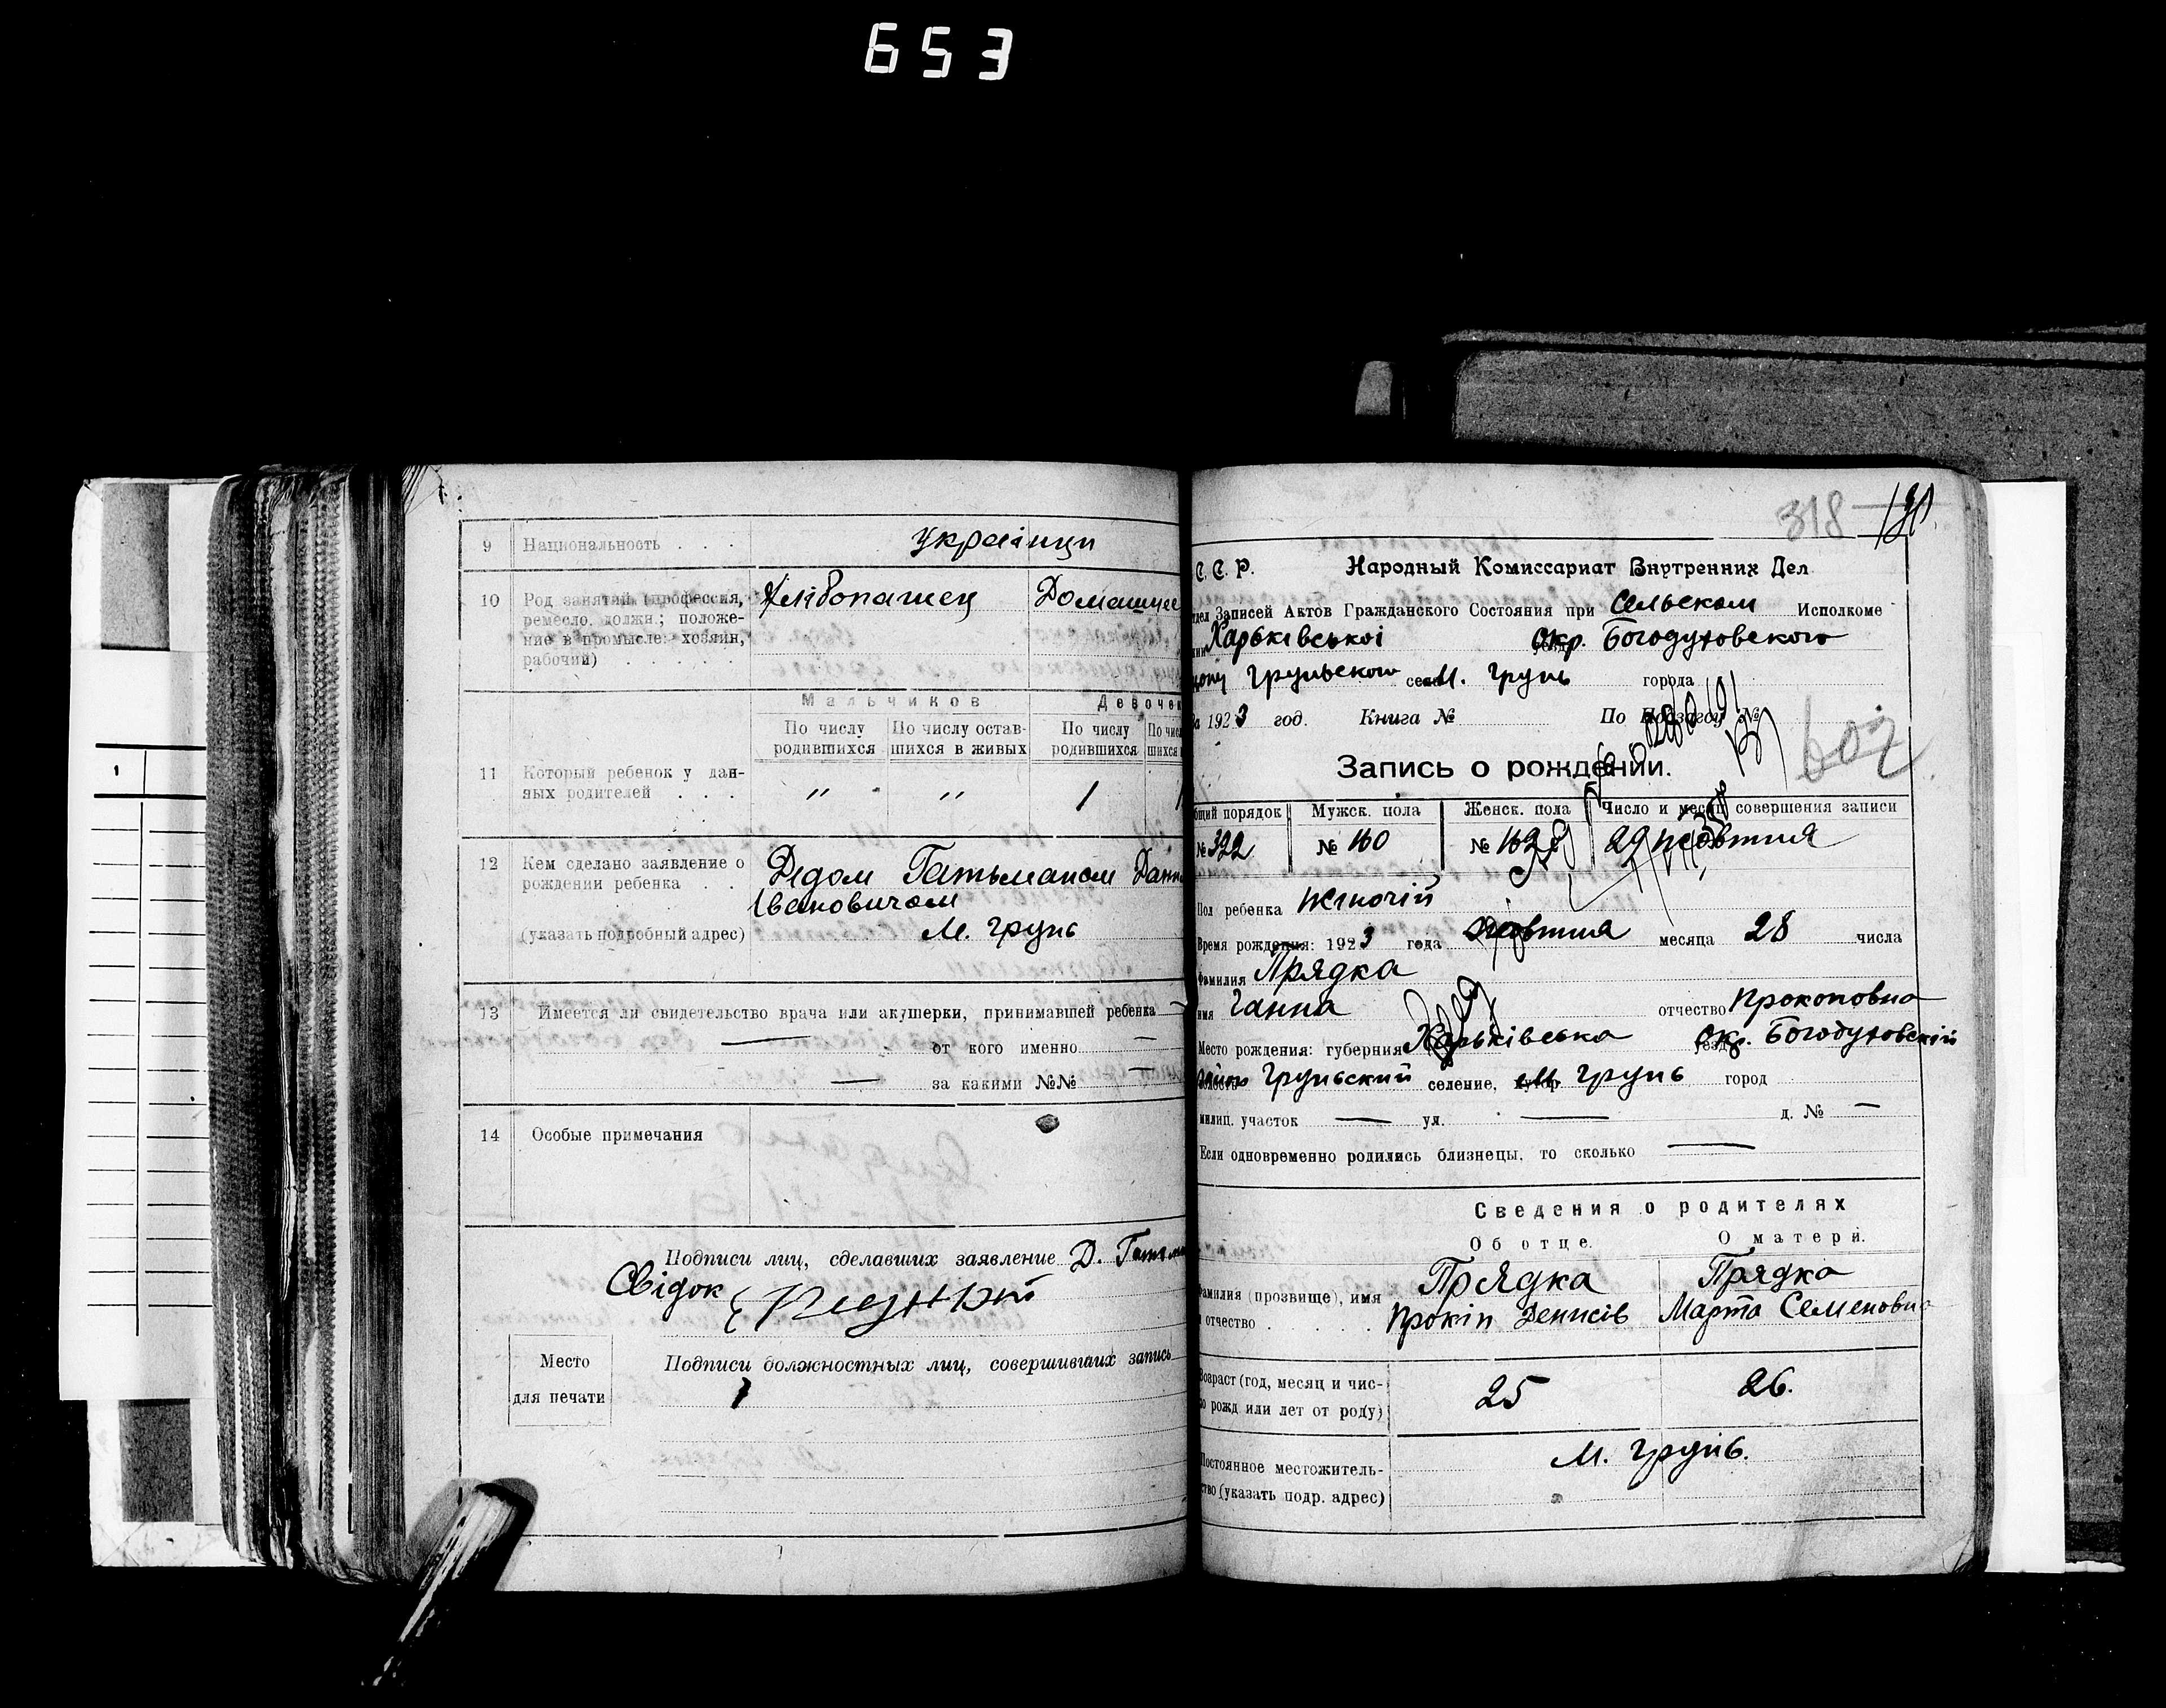 653
9 Национальность . . . українци
10 Род занятий (профессия, Хлібопашец Домашнее
ремесло, должн.; положе-
ние в промысле: хозяин,
рабочий) . . . . . .
Мальчиков Девочек
По числу По числу остав- По числу По чис
родившихся шихся в живых родившихся шихся
11 Который ребенок у дан-
ных родителей . . . " " 1 1
12 Кем сделано заявление о Дедом Гатьманом Дани
рождении ребенка . . Івановичом
(указать подробный адрес) М. Грунь
13 Имеется ли свидетельство врача или акушерки, принимавшей ребенка —
— от кого именно —
— за какими №№ —
14 Особые примечания
Подписи лиц, сделавших заявление Д. Гатьм
Свідок
Место
для печати
Подписи должностных лиц, совершивших запись
318
С. С. Р. Народный Комиссариат Внутренних Дел
тдел Записей Актов Гражданского Состояния при Сельском Исполкоме
нии Харьківської окр. Богодуховского
Груньского села М. Грунь города
За 1923 год. Книга № По №
602
Запись о рождении.
бщий порядок Мужск. пола Женск. пола Число и месяц совершения записи
№ 322 № 160 № 162 29 жовтня
Пол ребенка жіночій
Время рождения: 1923 года жовтня месяца 28 числа
Фамилия Прядка
имя Ганна отчество Прокоповна
Место рождения: губерния Харьківська уезд окр. Богодуховскій
район Груньский селение, хутор М. Грунь город
милиц. участок — ул. — д. № —
Если одновременно родились близнецы, то сколько —
Сведения о родителях
Об отце. О матери.
Фамилия (прозвище), имя Прядка Прядка
и отчество . . . . . Прокіп Денисів Марта Семеновна
Возраст (год, месяц и чис- 25 26.
ло рожд или лет от роду)
Постоянное местожитель- М. Грунь.
ство (указать подр. адрес)